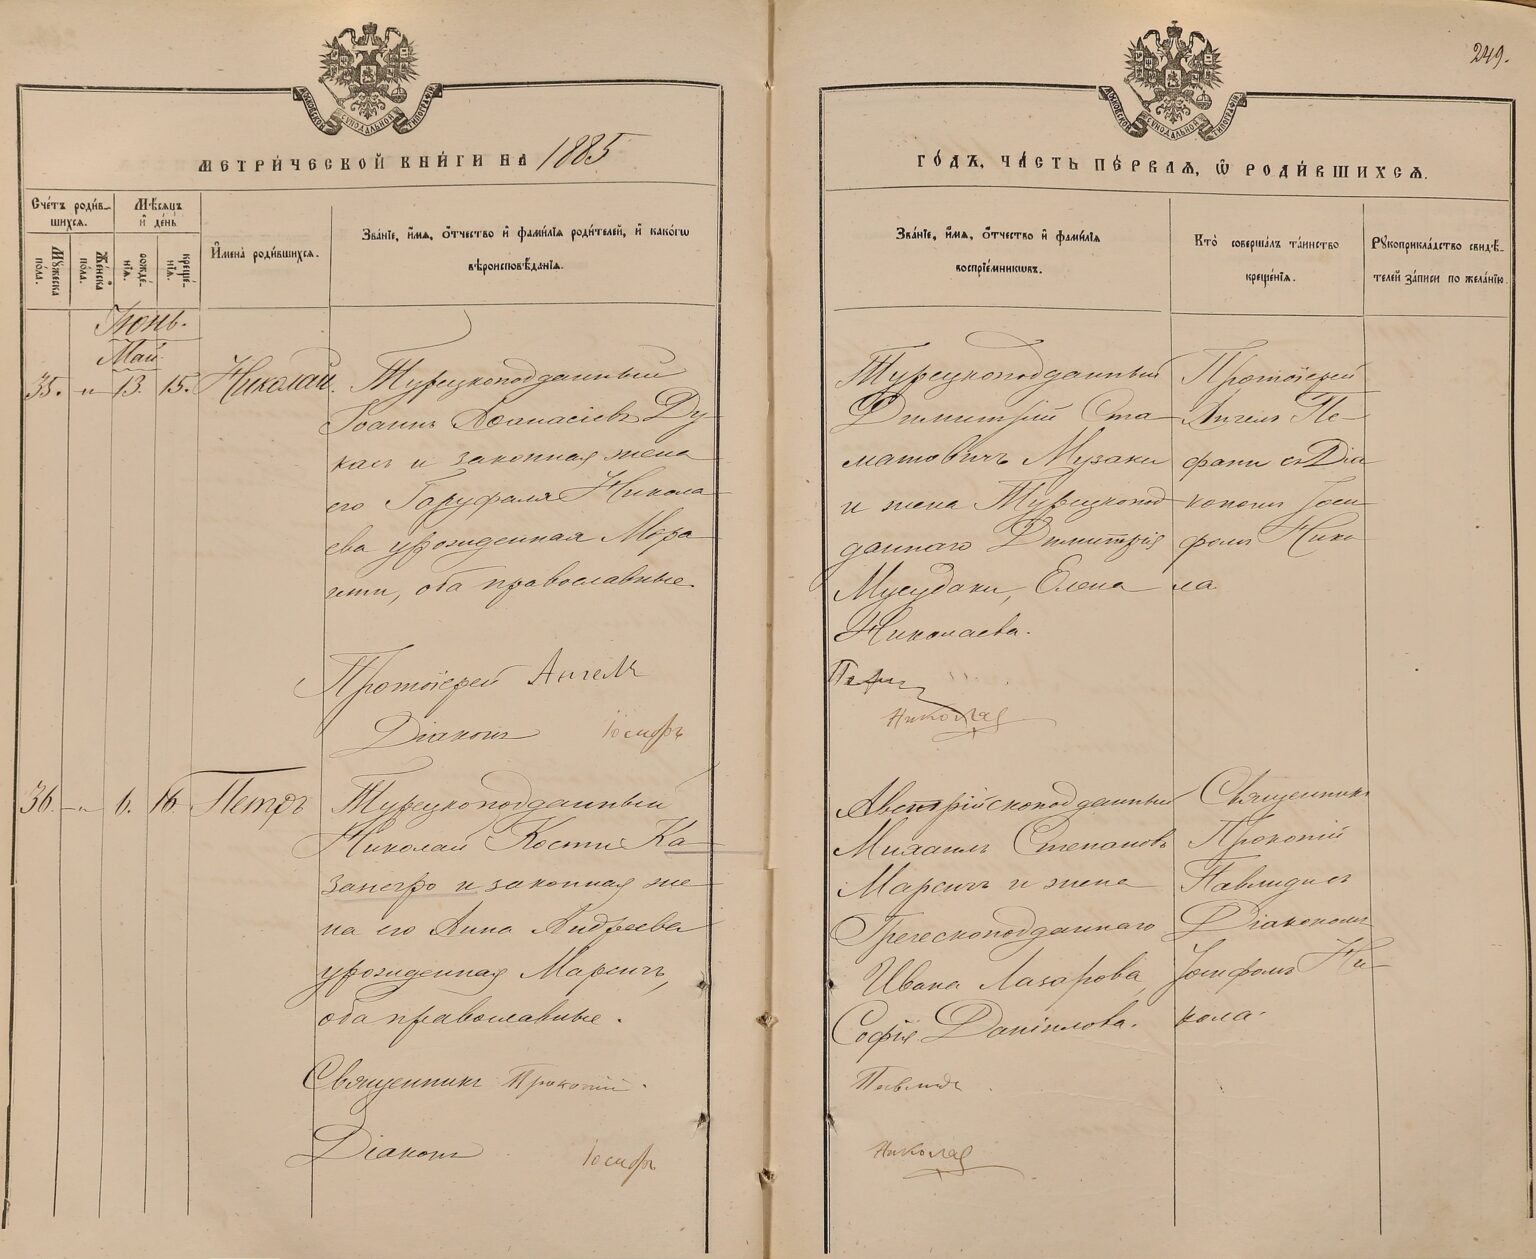 249.
МОСКОВСКОЙ СѴНОДАЛЬНОЙ ТИПОГРАФІИ
МОСКОВСКОЙ СѴНОДАЛЬНОЙ ТИПОГРАФІИ
МЕТРИ́ЧЕСКОЙ КНИ́ГИ НА 1885
ГО́ДЪ, ЧА́СТЬ ПЕ́РВАѦ, Ѡ҆ РОДИ́ВШИХСѦ.
Сче́тъ роди́в-
шихсѧ.
Мѣ́сѧцъ
и҆ де́нь
Мꙋ́жеска по́ла.
Же́нска по́ла.
рожде́-
нїѧ.
креще́-
нїѧ.
И҆мена̀ роди́вшихсѧ.
Зва́нїе, и҆́мѧ, ѻ҆́тчество и҆ фами́лїѧ роди́телей, и҆ како́гѡ
вѣроисповѣ́данїѧ.
Зва́нїе, и҆́мѧ, ѻ҆́тчество и҆ фами́лїѧ
воспрїе́мникѡвъ.
Кто̀ соверша́лъ та́инство
креще́нїѧ.
Рꙋкоприкла́дство свидѣ́-
телей за́писи по жела́нїю.
Іюнь.
Май.
35. „ 13. 15. Николай.
Турецкоподданный
Іоаннъ Аѳанасіевъ Ду
касъ и законная жена
его Гаруфаля Никола
ева урожденная Мора
ити, оба православные.
Протоіерей Ангелъ
Діаконъ Іосифъ
Турецкоподданный
Димитрій Ста
матовичъ Музаки
и жена Турецкопод
даннаго Димитрія
Мусудаки, Елена
Николаева.
Николая
Протоіерей
Ангелъ Пе-
фани съ Діа
кономъ Іоси
фомъ Нико
ла
36. „ 6. 16 Петръ
Турецкоподданный
Николай Кости Ка
занегро и законная же
на его Анна Андреева
урожденная Марсичъ,
оба православные.
Священникъ Прокопій.
Діаконъ Іосифъ
Австрійскоподданный
Михаилъ Степановъ
Марсичъ и жена
Греческоподданнаго
Ивана Лазарова,
Софія Даніилова.
Павлидисъ
Николая
Священникъ
Прокопій
Павлидисъ съ
Діакономъ
Іосифомъ Ни-
кола.